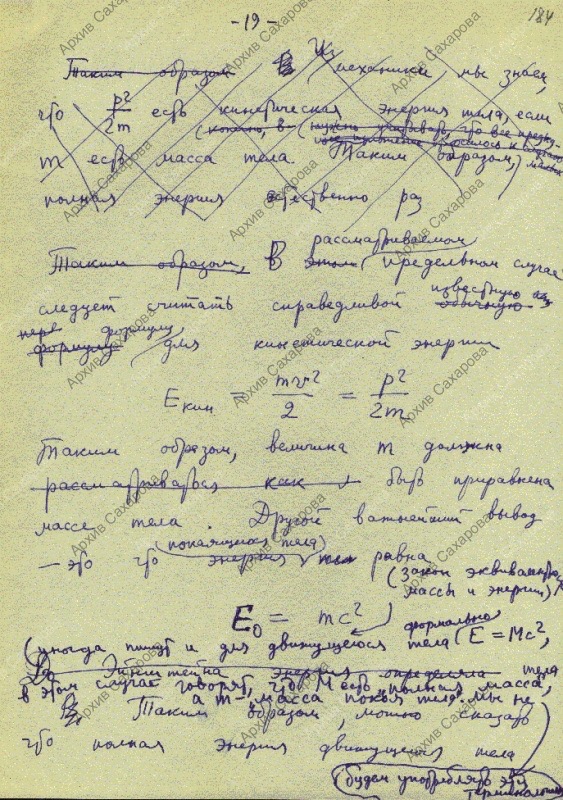 - 19 -
184
Таким образом Из механики мы знаем,
что p²/2m есть кинетическая энергия тела, если
(конечно, в (нужно учитывать, что все
m есть масса тела Таким образом,
полная энергия естественно раз
рассматриваемом
Таким образом, В этом предельном случае
следует считать справедливой обычную известную из
формулу формулу для кинетической энергии
E кин = mv²/2 = p²/2m
Таким образом, величина m должна
рассматриваться как быть приравнена
массе тела. Другой важнейший вывод
(покоящегося тела)
– это что энергия тела равна
(закон эквивалентности
массы и энергии)
E₀ = mc²
формально
(иногда пишут и для движущегося тела E = Mc²,
До Эйнштейна энергия определяла тела
в этом случае говорят, что M есть "полная масса",
а m – масса покоя тела. Мы не
Таким образом, можно сказать
что полная энергия движущегося тела
будем употреблять эту
терминологию)
Архив Сахарова